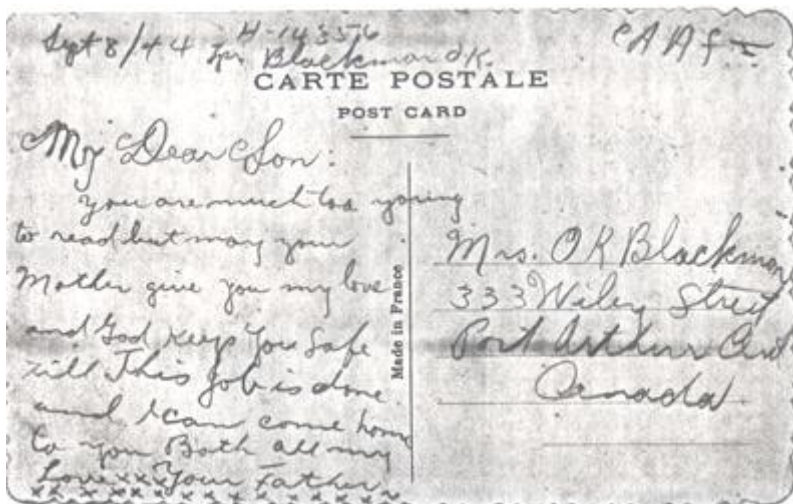 Sept 8/44 H-143556
Tpr Blackmon O K.
CAAF
CARTE POSTALE
POST CARD
My Dear Son:
you are much too young
to read but may your
Mother give you my love
and God keep you safe
till This Job is done
and I can come home
to you Both all my
Love xxx Your Father
x x x x x x x x x x x x x x x x x
Made in France
Mrs. O K Blackmon
333 Wiley Street
Port Arthur Ont
Canada